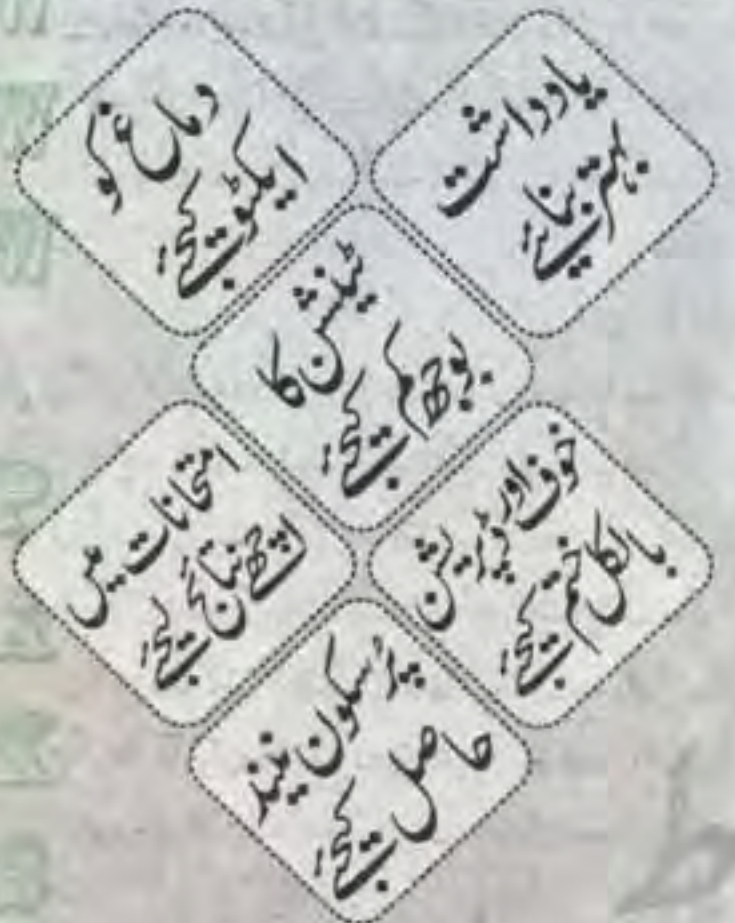 یادداشت
بہتر بنائیے
دماغ کو
ایکٹو کیجئے
ٹینشن کا
بوجھ کم کیجئے
خوف اور ڈپریشن
بالکل ختم کیجئے
امتحانات میں
اچھے نتائج لیجئے
پُرسکون نیند
حاصل کیجئے